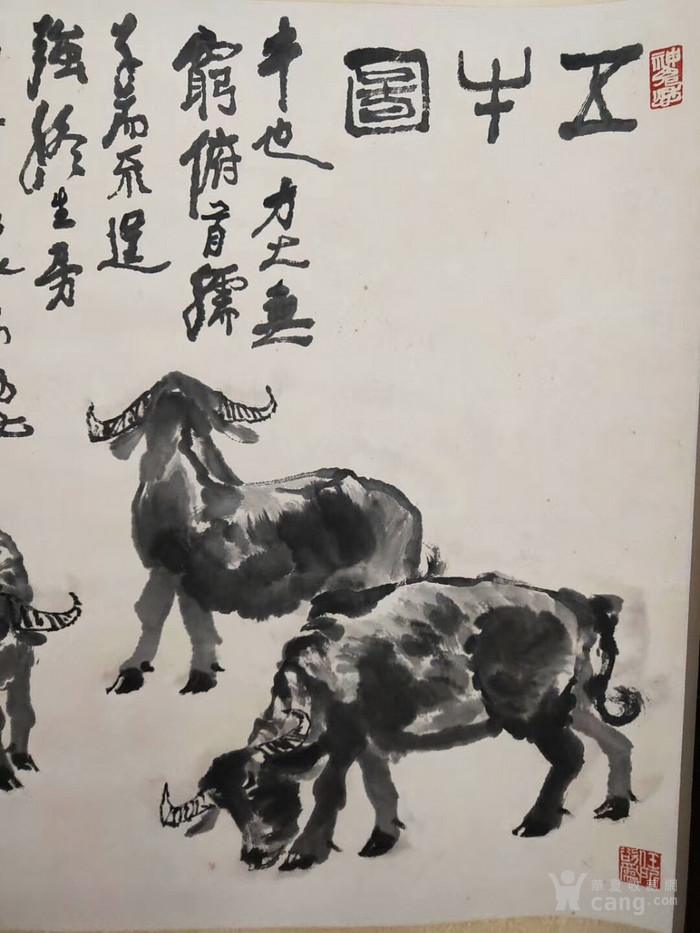 五牛圖
牛也力大無
窮俯首孺
子而不逞
強終生勞
華夏收藏網
cang.com